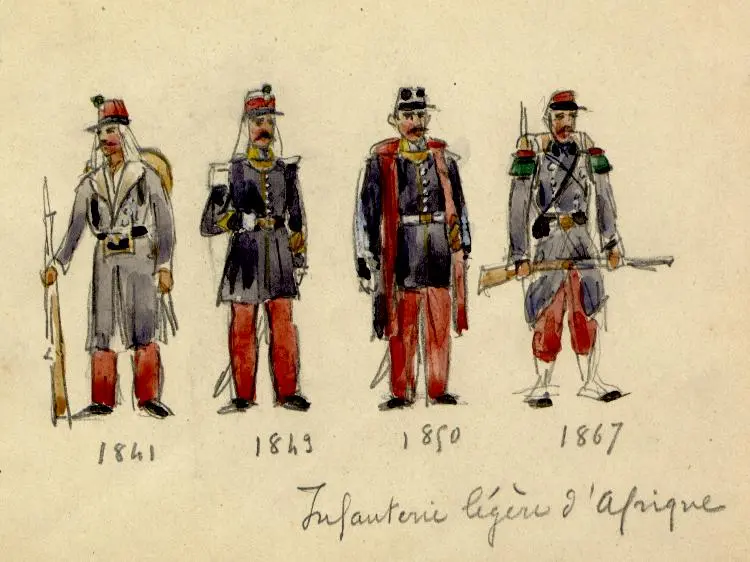 1841 1849 1850 1867
Infanterie légère d'Afrique